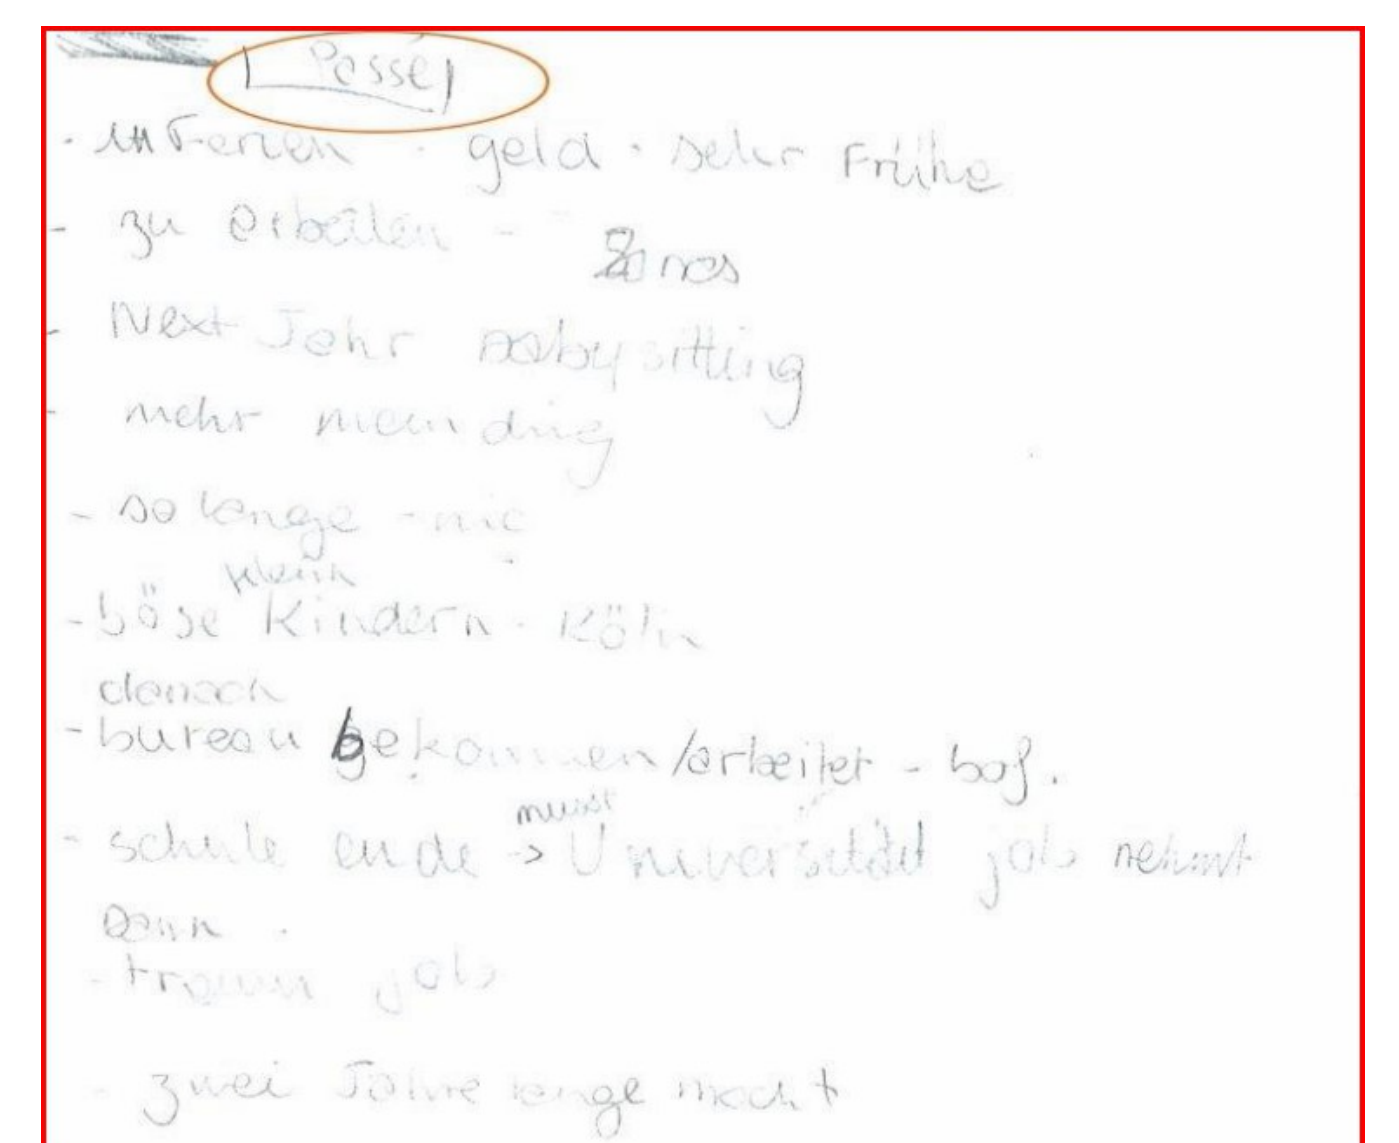 Passé
- in Ferien - geld - sehr Frühe
- zu arbeiten -
- Next Jahr babysitting
- mehr mein ding
- so lange - nie
klein
- böse Kindern - Köln
danach
- bureau bekommen/arbeitet - bof.
musst
- schule ende -> Universität job nehmt
Dann -
- traum job
- zwei Jahre lange macht